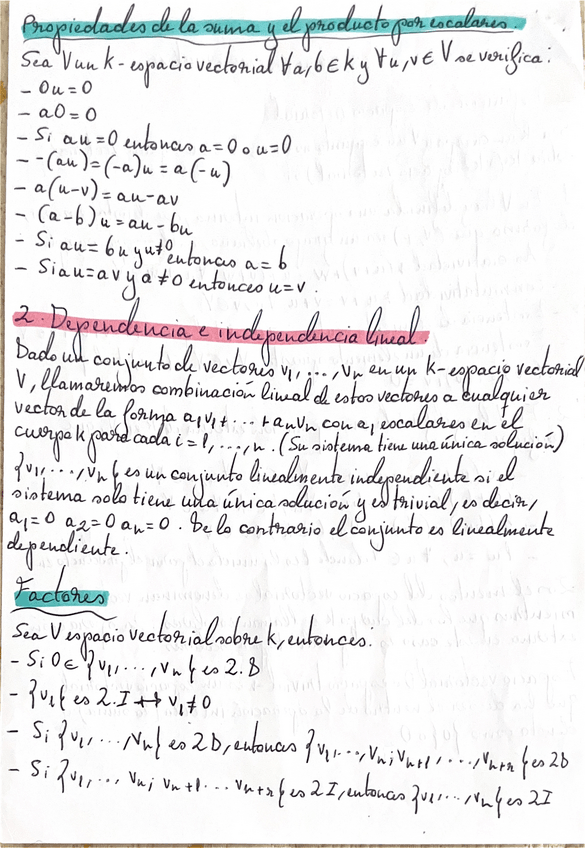 Propiedades de la suma y el producto por escalares
Sea V un k-espacio vectorial ∀a,b∈k y ∀u,v∈V se verifica:
- 0u=0
- a0=0
- Si au=0 entonces a=0 o u=0
- -(au)=(-a)u=a(-u)
- a(u-v)=au-av
- (a-b)u=au-bu
- Si au=bu y u≠0 entonces a=b
- Si au=av y a≠0 entonces u=v.
2. Dependencia e independencia lineal.
Dado un conjunto de vectores v₁,...,vₙ en un k-espacio vectorial
V, llamaremos combinación lineal de estos vectores a cualquier
vector de la forma a₁v₁+...+aₙvₙ con a₁ escalares en el
cuerpo k para cada i=1,...,n. (Su sistema tiene una única solución)
{v₁,...,vₙ} es un conjunto linealmente independiente si el
sistema solo tiene una única solución y es trivial, es decir,
a₁=0 a₂=0 aₙ=0. De lo contrario el conjunto es linealmente
dependiente.
Factores
Sea V espacio vectorial sobre k, entonces.
- Si 0∈{v₁,...,vₙ} es 2.D
- {v₁} es 2.I ↔ v₁≠0
- Si {v₁,...,vₙ} es 2D, entonces {v₁,...,vₙ;vₙ₊₁,...,vₙ₊ᵣ} es 2D
- Si {v₁,...,vₙ; vₙ₊₁...vₙ₊ᵣ} es 2I, entonces {v₁,...,vₙ} es 2I